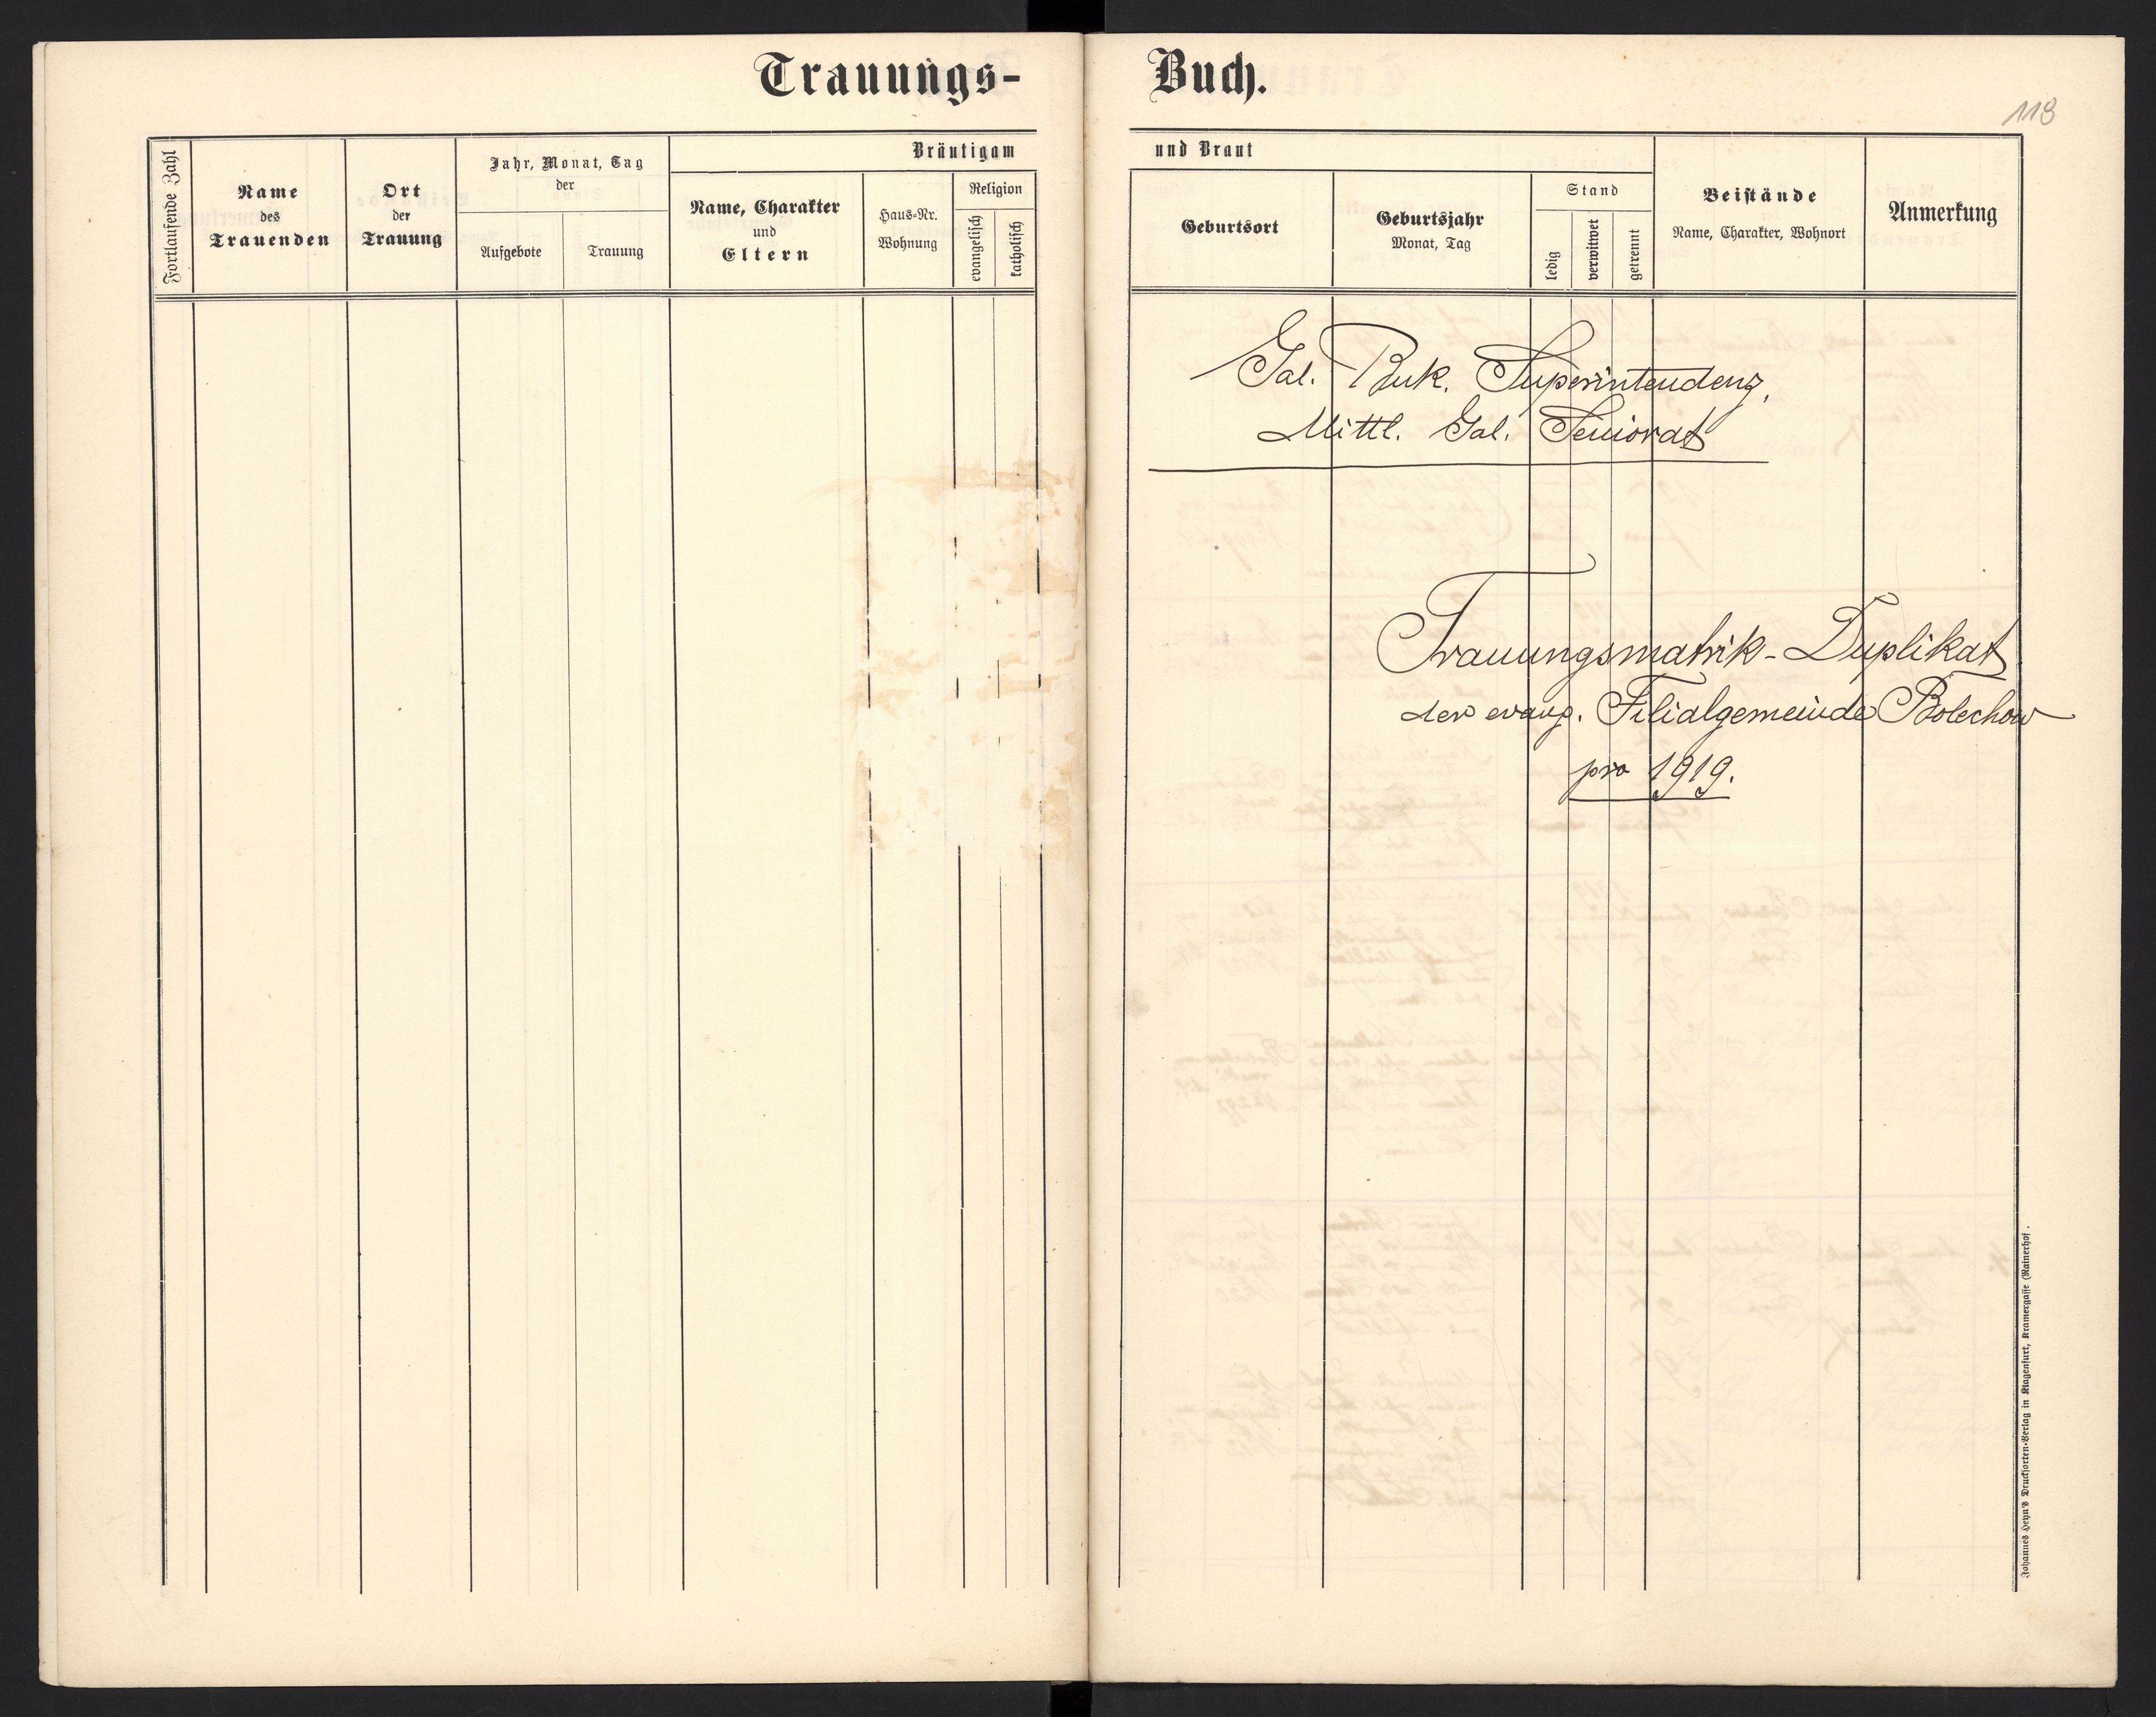 Trauungs-
Buch.
118
Fortlaufende Zahl
Name
des
Trauenden
Ort
der
Trauung
Jahr, Monat, Tag
der
Aufgebote
Trauung
Bräutigam
Name, Charakter
und
Eltern
Haus-Nr.
Wohnung
Religion
evangelisch
katholisch
und Braut
Geburtsort
Geburtsjahr
Monat, Tag
Stand
ledig
verwitwet
getrennt
Beistände
Name, Charakter, Wohnort
Anmerkung
Gal. Buk. Superintendenz,
Mittl. Gal. Seniorat
Trauungsmatrik-Duplikat
der evang. Filialgemeinde Bolechow
pro 1919.
Johannes Heyn's Drucksorten-Verlag in Klagenfurt, Kramergasse (Rainerhof.